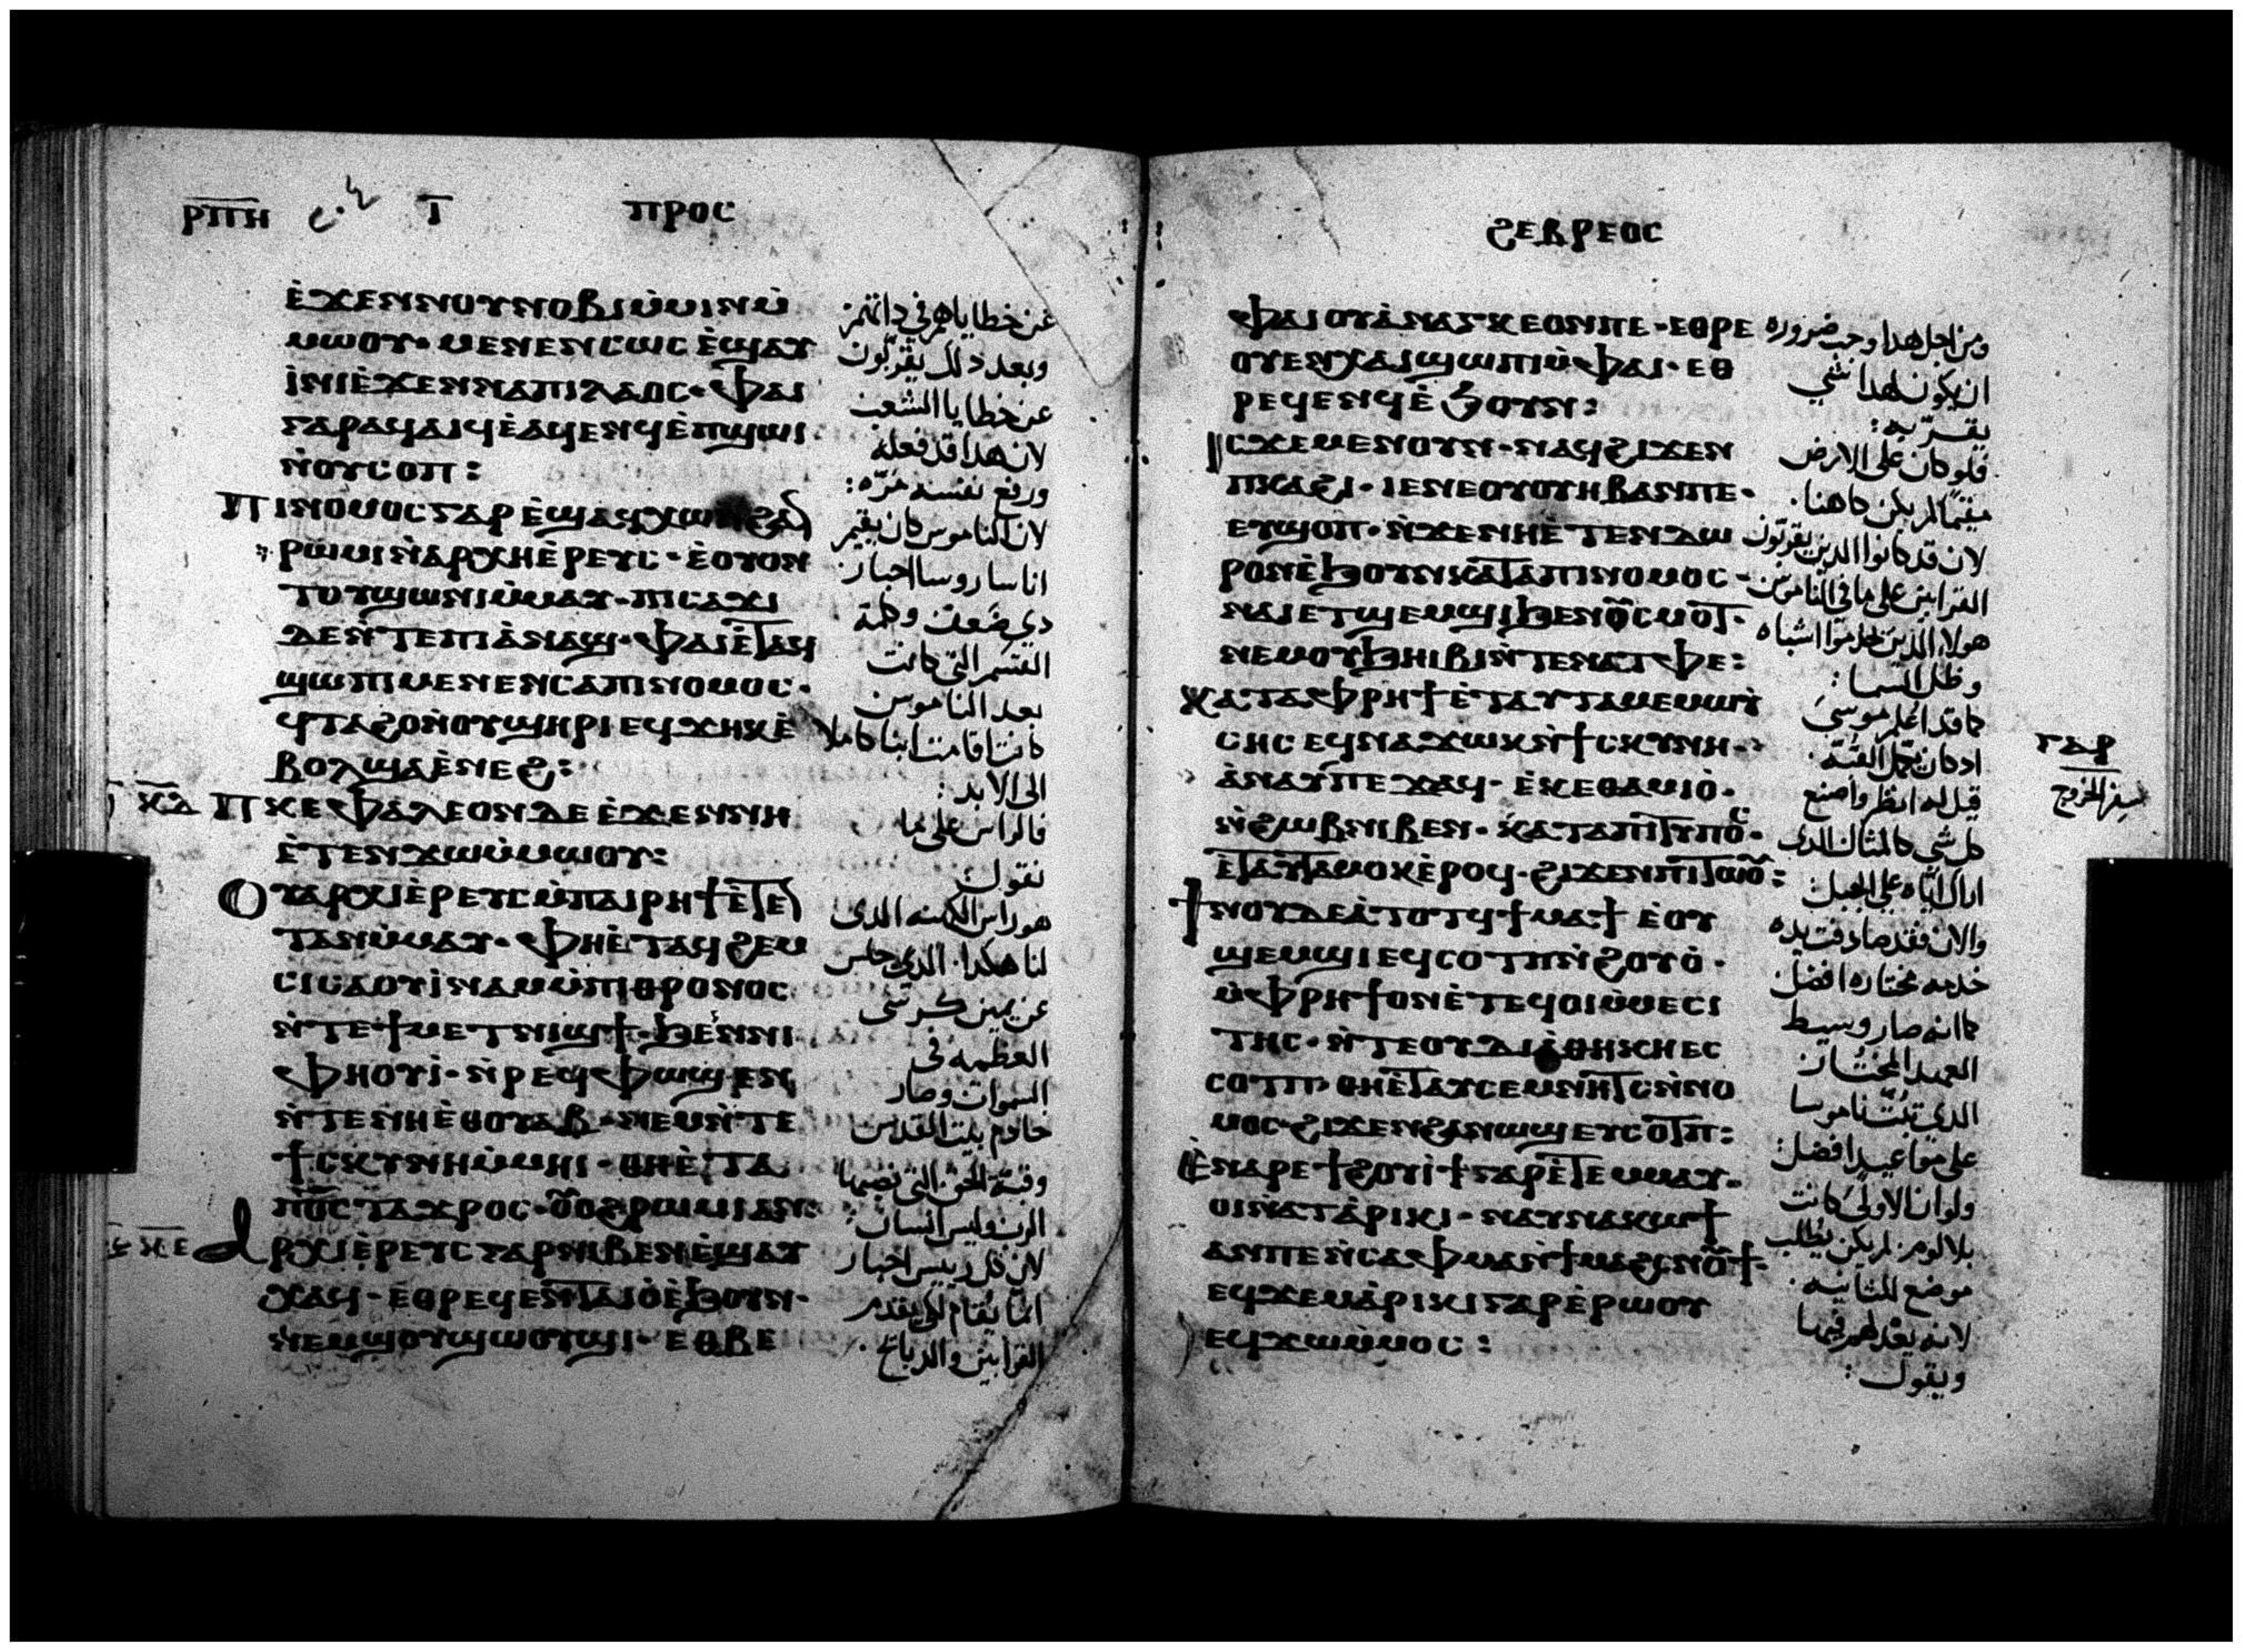 ⲣⲡⲏ ⲧ ⲡⲣⲟⲥ
ⲉ̀ϫⲉⲛⲛⲟⲩⲛⲟⲃⲓⲙ̀ⲙⲓⲛⲙ̀
ⲙⲱⲟⲩ· ⲙⲉⲛⲉⲛⲥⲱⲥ ⲉ̀ϣⲁⲩ
ⲓ̀ⲛⲓⲉ̀ϫⲉⲛⲛⲁⲡⲓⲗⲁⲟⲥ· ⲫⲁⲓ
ⲅⲁⲣⲁϥⲁⲓϥⲉ̀ⲁϥⲉⲛϥⲉ̀ⲡϣⲱⲓ·
ⲛ̀ⲟⲩⲥⲟⲡ:
ⲡⲓⲛⲟⲙⲟⲥⲅⲁⲣ ⲉ̀ϣⲁϥⲭⲱ
ⲣⲱⲙⲓⲛ̀ⲁⲣⲭⲏⲉ̀ⲣⲉⲩⲥ· ⲉ̀ⲟⲩⲟⲛ
ⲧⲟⲩϣⲱⲛⲓⲙ̀ⲙⲁⲩ· ⲡⲓⲥⲁϫⲓ
ⲇⲉⲛ̀ⲧⲉⲡⲓⲁ̀ⲛⲁϣ· ⲫⲁⲓⲉ̀ⲧⲁϥ
ϣⲱⲡⲓⲙⲉⲛⲉⲛⲥⲁⲡⲓⲛⲟⲙⲟⲥ·
ϥⲧⲁϩⲟⲛ̀ⲟⲩϣⲏⲣⲓⲉϥϫⲏⲕⲉ̀
ⲃⲟⲗϣⲁⲉ̀ⲛⲉϩ:
ⲕⲇ ⲡⲕⲉⲫⲁⲗⲉⲟⲛⲇⲉⲉ̀ϫⲉⲛⲛⲏ
ⲉ̀ⲧⲉⲛϫⲱⲙ̀ⲙⲱⲟⲩ:
ⲟⲩⲁⲣⲭⲓⲉ̀ⲣⲉⲩⲥⲙ̀ⲡⲁⲓⲣⲏϯⲉ̀ⲧⲉ
ⲧⲁⲛⲙ̀ⲙⲁⲩ· ⲫⲏⲉ̀ⲧⲁϥϩⲉⲙ
ⲥⲓⲥⲁⲟⲩⲓ̀ⲛⲁⲙⲙ̀ⲡⲓⲑⲣⲟⲛⲟⲥ
ⲛ̀ⲧⲉϯⲙⲉⲧⲛⲓϣϯ· ϧⲉⲛⲛⲓ
ⲫⲏⲟⲩⲓ̀· ⲛ̀ⲣⲉϥⲫⲱϣⲉⲛ
ⲛ̀ⲧⲉⲛⲏⲉ̀ⲑⲟⲩⲁⲃ· ⲛⲉⲙⲛ̀ⲧⲉ
ϯⲥⲕⲩⲛⲏⲙ̀ⲙⲏⲓ· ⲑⲏⲉ̀ⲧⲁ
ⲡⲟ̅ⲥ̅ ⲧⲁϫⲣⲟⲥ· ⲟⲩⲟϩⲣⲱⲙⲓⲁⲛ:
ⲕⲉ ⲁⲣⲭⲓⲉ̀ⲣⲉⲩⲥ ⲅⲁⲣⲛⲓⲃⲉⲛⲉ̀ϣⲁⲩ
ⲭⲁϥ· ⲉⲑⲣⲉϥⲉⲛⲧⲁⲓⲟ̀ⲉ̀ϧⲟⲩⲛ·
ⲛⲉⲙϣⲟⲩϣⲱⲟⲩϣⲓ· ⲉⲑⲃⲉ
عن خطاياهم في داتهم
وبعد دلك يقربون
عن خطايا الشعب
لان هدا قد فعله
ورفع نفسه مره:
لان الناموس كان يقيم
اناسا روسا احبار
دي ضعف وكلمة
القسم التي كانت
بعد الناموس
كانت اقامت ابنا كاملا
الى الابد:
فالراس على ما
نقول
هو راس الكهنه الدى
لنا هكدا· الدي جلس
عن يمين كرسي
العظمه في
السموات وصار
خادم بيت القدس
وقبة الحق التي نصبها
الرب وليس انسان:
لان كل رييس احبار
انما يقام لكي يقدم
القرابين والدبايح·
ϩⲉⲃⲣⲉⲟⲥ
ⲫⲁⲓⲟⲩⲁ̀ⲛⲁⲅⲕⲉⲟⲛⲡⲉ· ⲉⲑⲣⲉ
ⲟⲩⲉⲛⲭⲁⲓϣⲱⲡⲓⲙ̀ⲫⲁⲓ· ⲉⲑ
ⲣⲉϥⲉⲛϥⲉ̀ϧⲟⲩⲛ:
ⲓⲥϫⲉⲙⲉⲛⲟⲩⲛ· ⲛⲁϥϩⲓϫⲉⲛ
ⲡⲕⲁϩⲓ· ⲓⲉⲛⲉⲟⲩⲟⲩⲏⲃⲁⲛⲡⲉ·
ⲉⲩϣⲟⲡ· ⲛ̀ϫⲉⲛⲏⲉ̀ⲧⲉⲛⲇⲱ
ⲣⲟⲛⲉ̀ϧⲟⲩⲛⲕⲁⲧⲁⲡⲓⲛⲟⲙⲟⲥ·
ⲛⲁⲓⲉⲧϣⲉⲙϣⲓϧⲉⲛⲟⲩⲥⲙⲟⲧ·
ⲛⲉⲙⲟⲩϧⲏⲓⲃⲓⲛ̀ⲧⲉⲛⲁⲧⲫⲉ:
ⲕⲁⲧⲁⲫⲣⲏϯⲉ̀ⲧⲁⲩⲧⲁⲙⲉⲙⲱⲩ̀
ⲥⲏⲥ ⲉϥⲛⲁϫⲱⲕⲛ̀ϯⲥⲕⲩⲛⲏ·
ⲁ̀ⲛⲁⲩⲡⲉϫⲁϥ· ⲉ̀ⲕⲉⲑⲁⲙⲓⲟ̀·
ⲛ̀ϩⲱⲃⲛⲓⲃⲉⲛ· ⲕⲁⲧⲁⲡⲓⲧⲩⲡⲟⲥ·
ⲉ̀ⲧⲁⲩⲧⲁⲙⲟⲕⲉ̀ⲣⲟϥ· ϩⲓϫⲉⲛⲡⲓⲧⲱⲟⲩ:
ϯⲛⲟⲩⲇⲉⲁ̀ⲧⲟⲧϥϯⲙⲁϯ ⲉ̀ⲟⲩ
ϣⲉⲙϣⲓⲉϥⲥⲟⲧⲡⲛ̀ϩⲟⲩⲟ̀·
ⲙ̀ⲫⲣⲏϯⲟⲛⲉ̀ⲧⲉϥⲟⲓⲙ̀ⲙⲉⲥⲓ
ⲧⲏⲥ· ⲛ̀ⲧⲉⲟⲩⲇⲓⲁⲑⲏⲕⲏⲉⲥ
ⲥⲟⲧⲡ· ⲑⲏⲉ̀ⲧⲁⲩⲥⲉⲙⲛⲏⲧⲥⲛ̀ⲛⲟ
ⲙⲟⲥ· ϩⲓϫⲉⲛϩⲁⲛⲱϣⲉⲩⲥⲟⲧⲡ:
ⲉ̀ⲛⲁⲣⲉϯϩⲟⲩⲓ̀ϯⲅⲁⲣⲉ̀ⲧⲉⲙⲙⲁⲩ·
ⲟⲓⲛ̀ⲁⲧⲁ̀ⲣⲓⲕⲓ· ⲛⲁⲩⲛⲁⲕⲱϯ
ⲁⲛⲡⲉⲛ̀ⲥⲁⲫⲙⲁⲛ̀ϯⲙⲁϩⲥⲛⲟⲩϯ·
ⲉϥϫⲉⲙⲁ̀ⲣⲓⲕⲓⲅⲁⲣⲉ̀ⲣⲱⲟⲩ
ⲉϥϫⲱⲙ̀ⲙⲟⲥ:
ومن اجل هدا وجب ضروره
ان يكون لهدا شي
يقربه:
فلو كان على الارض
مقيما لم يكن كاهنا·
لان قد كانوا الدين يقربون
القرابين على ما في الناموس
هولاء الدين خدموا اشباه
وظل السما:
كما قد اعلم موسى
اد كان يكمل القبة·
قيل له انظر واصنع
كل شي كالمثال الدى
اراك اياه على الجبل:
والان فقد صادفت يده
خدمه مختاره افضل
كما انه صار وسيط
العهد المختار
الدي تبت ناموسا
على مواعيد افضل:
ولو ان الاولى كانت
بلا لوم· لم يكن يطلب
موضع للثانيه·
لانه يعدلهم فيها
ويقول:
ⲅⲁⲣ
سفر الخروج